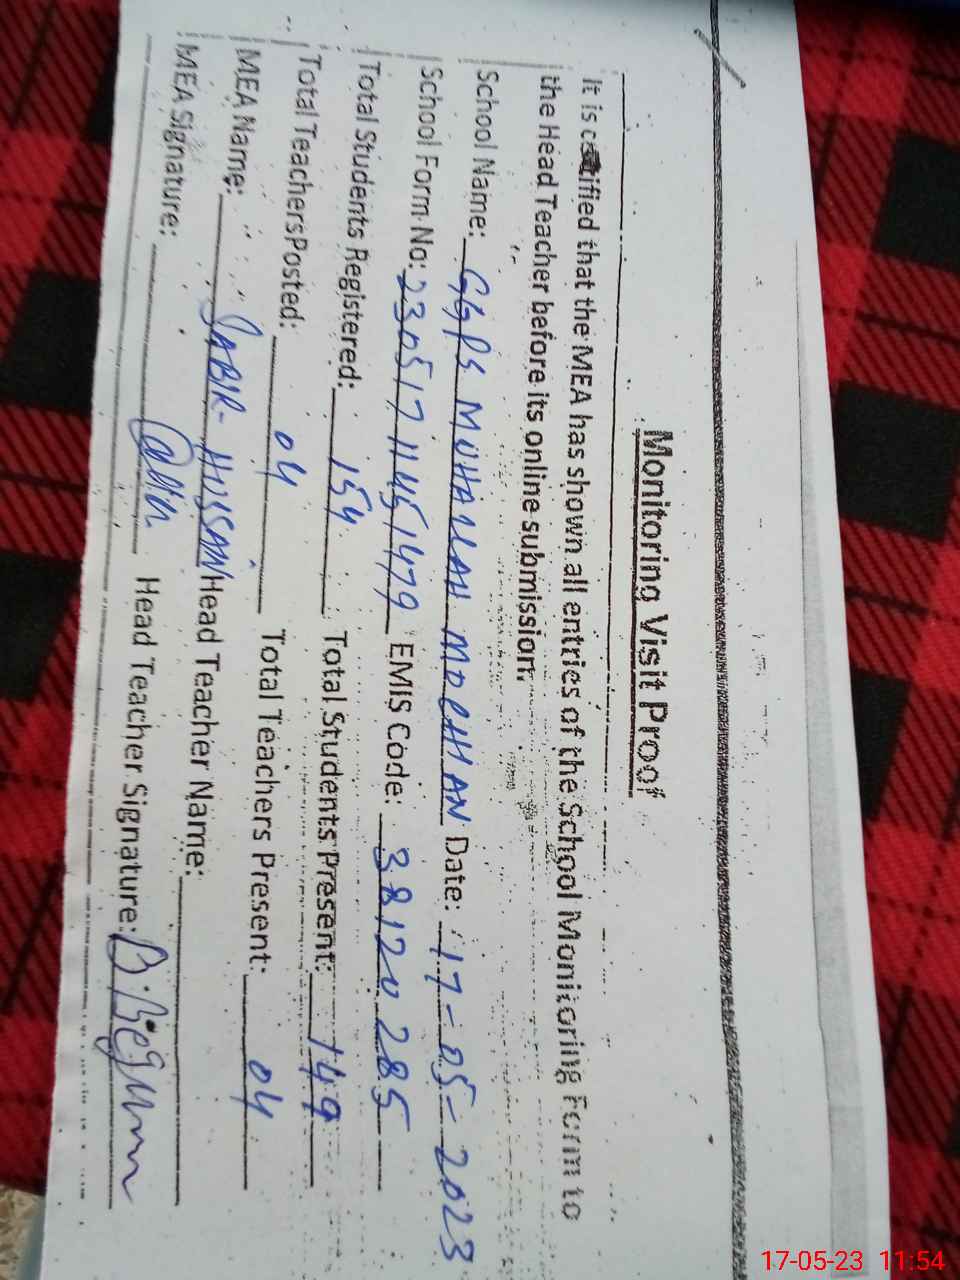 Monitoring Visit Proof
It is certified that the MEA has shown all entries of the School Monitoring Form to
the Head Teacher before its online submission.
School Name: GGPS MUHALLAH MOCHIAN Date: 17-05-2023
School Form No: 230517 1145 1479 EMIS Code: 38120285
Total Students Registered: 154 Total Students Present: 149
Total Teachers Posted: 04 Total Teachers Present: 04
MEA Name: SABIR HUSSAIN Head Teacher Name:
MEA Signature: Head Teacher Signature: B.Begum
17-05-23 11:54